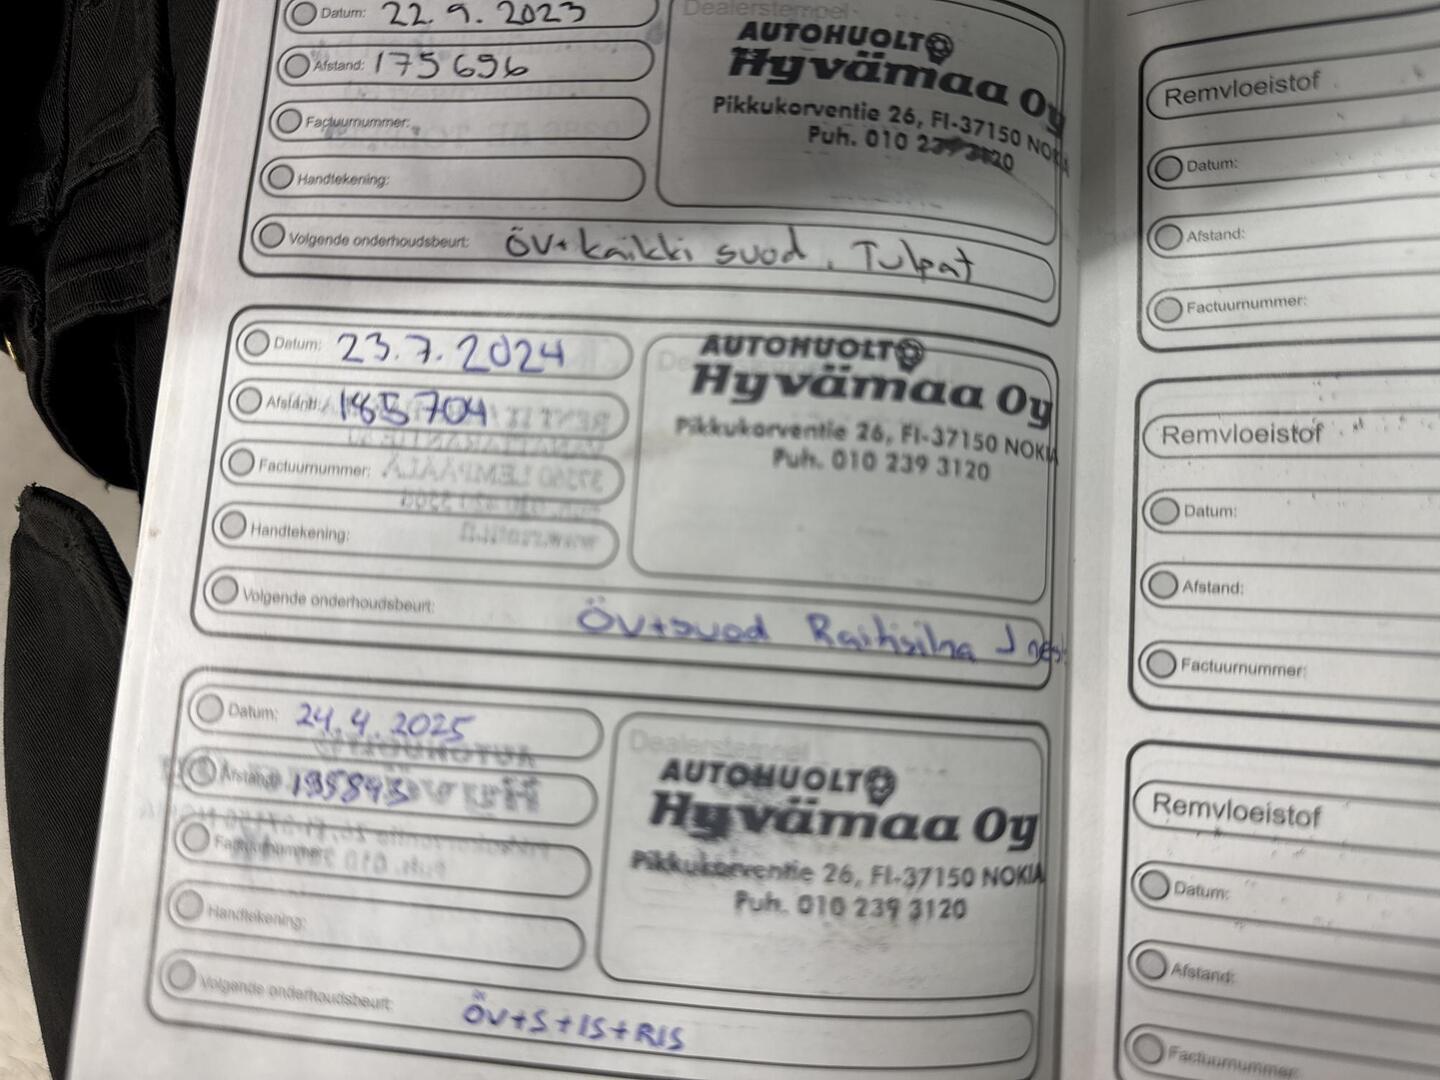 Datum: 22.9.2023
Afstand: 175 696
Factuurnummer:
Handtekening:
Dealerstempel
AUTOHUOLTO
Hyvämaa Oy
Pikkukorventie 26, FI-37150 NOKIA
Puh. 010 239 3120
Volgende onderhoudsbeurt: ÖV+kaikki suod. Tulpat
Datum: 23.7.2024
Afstand: 185 704
Factuurnummer:
Handtekening:
AUTOHUOLTO
Hyvämaa Oy
Pikkukorventie 26, FI-37150 NOKIA
Puh. 010 239 3120
Volgende onderhoudsbeurt: ÖV+suod Raitisilma
Datum: 24.4.2025
Afstand: 195843
Factuurnummer:
Handtekening:
Dealerstempel
AUTOHUOLTO
Hyvämaa Oy
Pikkukorventie 26, FI-37150 NOKIA
Puh. 010 239 3120
Volgende onderhoudsbeurt: ÖV+S+IS+RIS
Remvloeistof
Datum:
Afstand:
Factuurnummer:
Remvloeistof
Datum:
Afstand:
Factuurnummer:
Remvloeistof
Datum:
Afstand:
Factuurnummer: